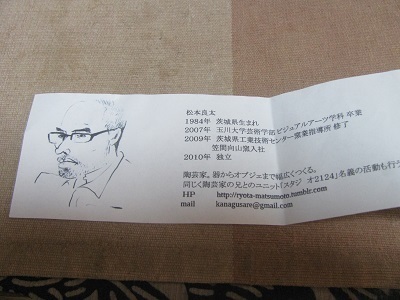 松本良太
1984年 茨城県生まれ
2007年 玉川大学芸術学部ビジュアルアーツ学科 卒業
2009年 茨城県工業技術センター窯業指導所 修了
笠間向山窯入社
2010年 独立
陶芸家。器からオブジェまで幅広くつくる。
同じく陶芸家の兄とのユニット「スタジオ2124」名義の活動も行う
HP http://ryota-matsumoto.tumblr.com
mail kanagusare@gmail.com